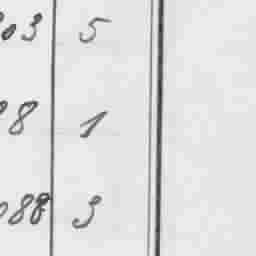 03 5
8 1
88 3